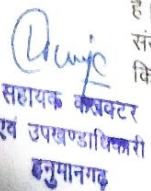 है।
सहायक कलक्टर
एवं उपखण्डाधिकारी
हनुमानगढ़